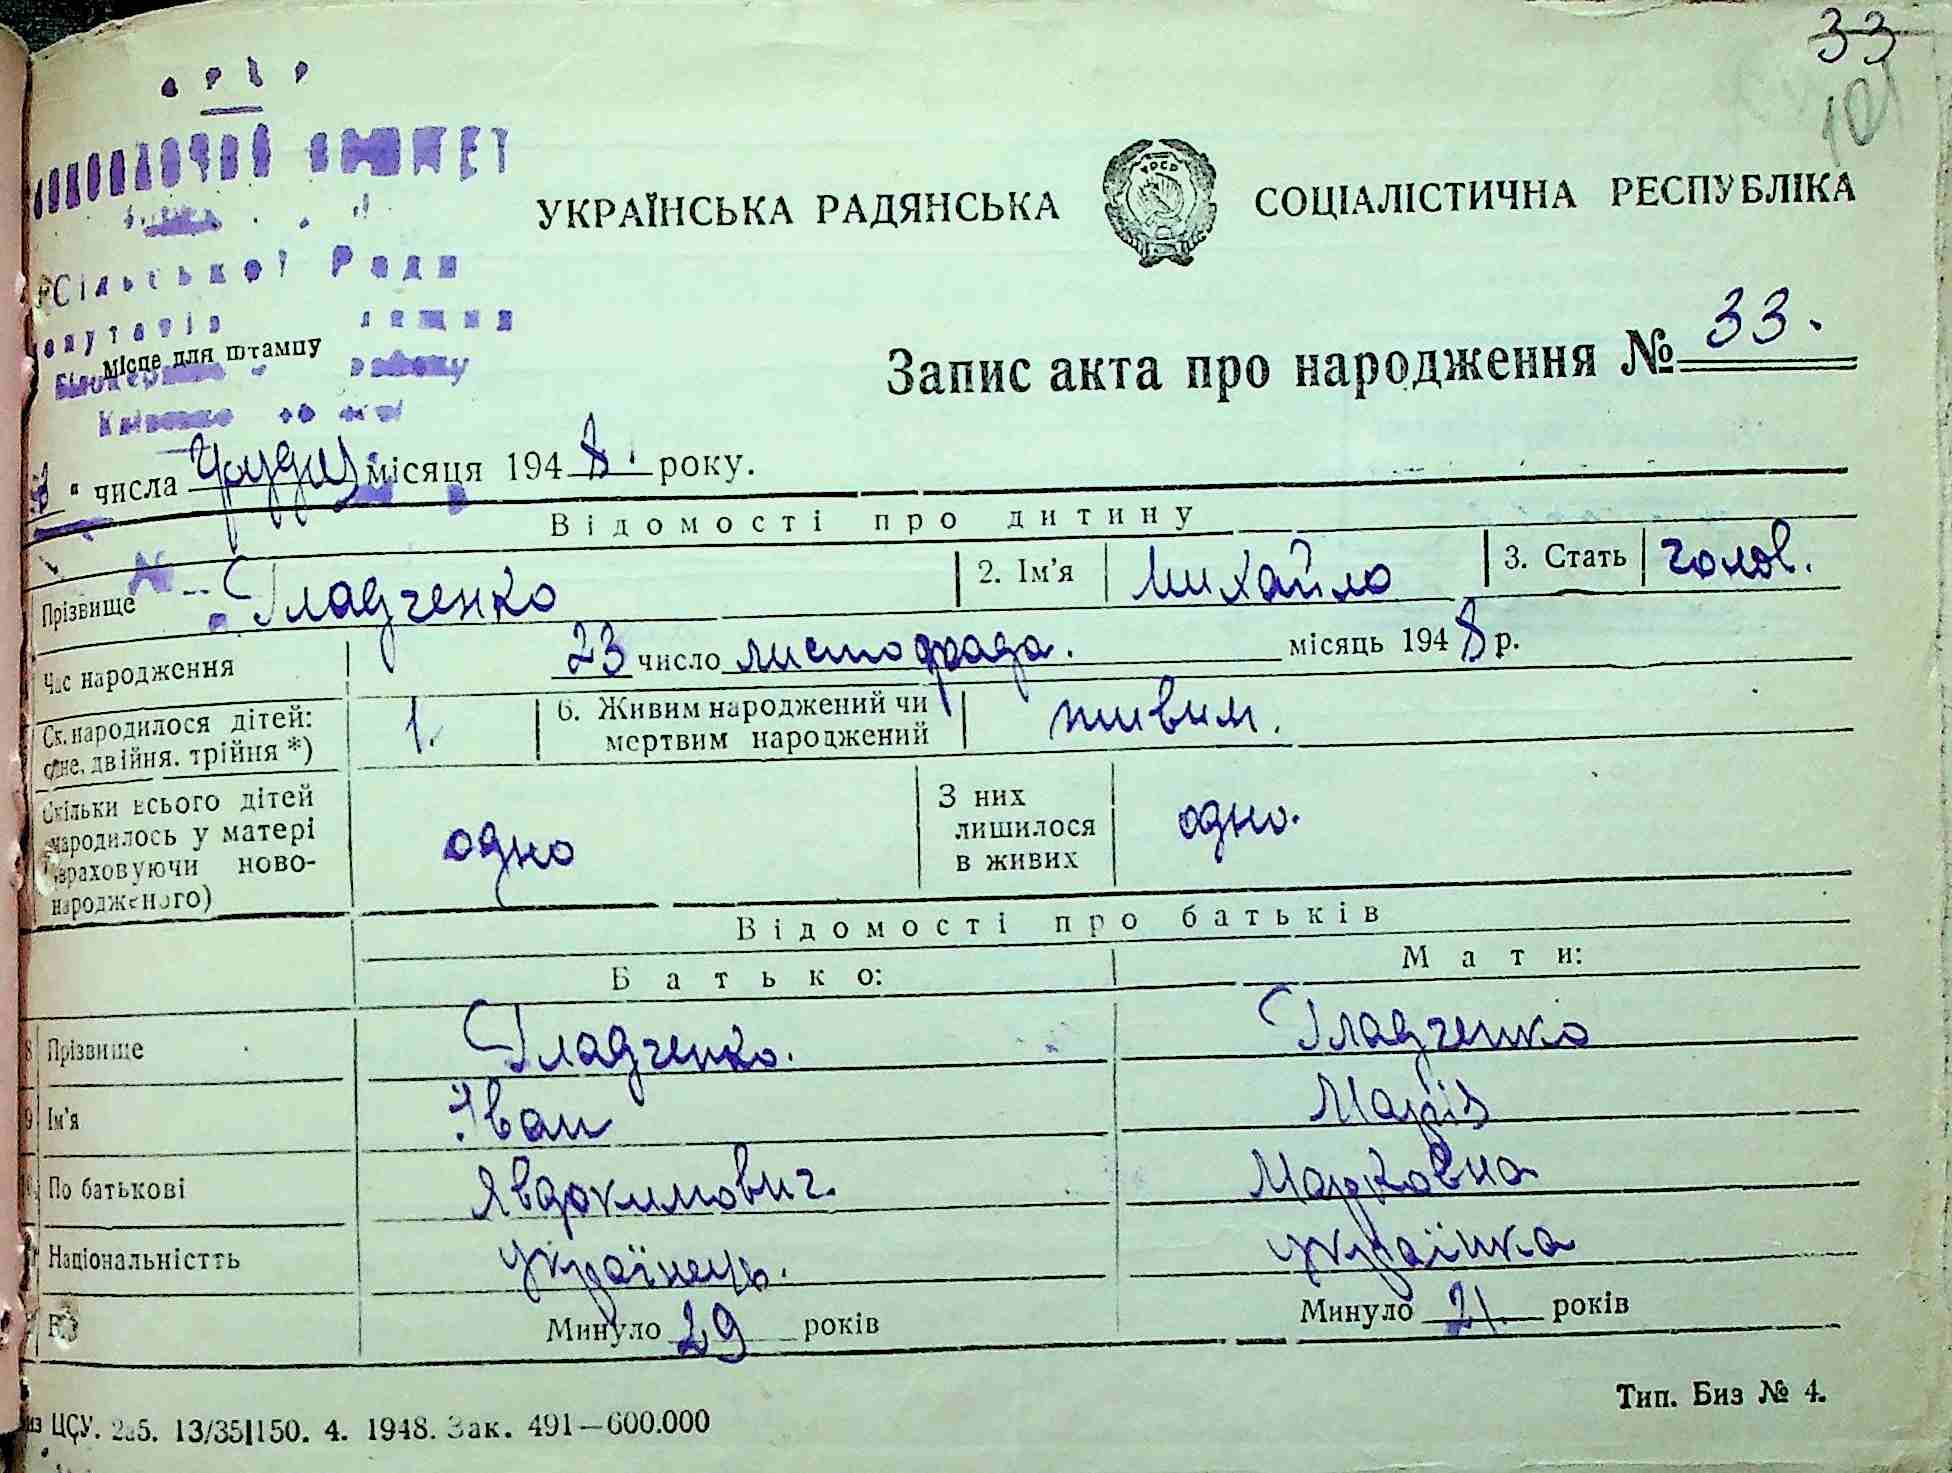 33
101
УРСР
ВИКОНАВЧИЙ КОМІТЕТ
Сільської Ради
депутатів трудящих
району
Місце для штампу
УКРАЇНСЬКА РАДЯНСЬКА СОЦІАЛІСТИЧНА РЕСПУБЛІКА
Запис акта про народження № 33.
" числа Грудня місяця 1948. року.
Відомості про дитину
Прізвище Гладченко 2. Ім'я Михайло 3. Стать голов.
Час народження 23 число листопада. місяць 1948 р.
Ск. народилося дітей: 1. 6. Живим народжений чи живим.
одне, двійня, трійня *) мертвим народжений
Скільки всього дітей З них
народилось у матері одно лишилося одно.
(враховуючи ново- в живих
народженого)
Відомості про батьків
Батько: Мати:
8 Прізвище Гладченко. Гладченко
9 Ім'я Іван Марія
По батькові Явдокимович. Марковна
Національністть українець. українка
Вік Минуло 29 років Минуло 21. років
ЦСУ. 13/35|150. 4. 1948. Зак. 491—600.000
Тип. Биз № 4.